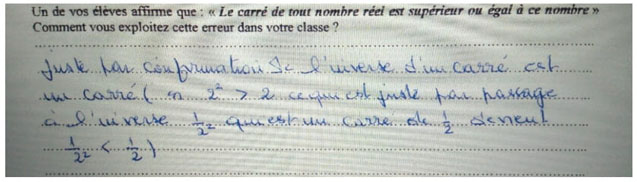 Un de vos élèves affirme que : « Le carré de tout nombre réel est supérieur ou égal à ce nombre »
Comment vous exploitez cette erreur dans votre classe ?
Juste par confirmation de l'inverse d'un carré est
un carré ( 2² > 2 ce qui est juste par passage
à l'inverse 1/2² qui est un carré de 1/2 devient
1/2² < 1/2 )